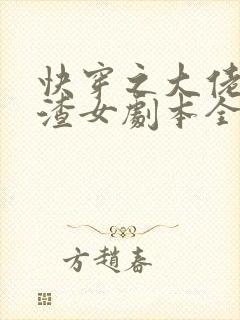 快穿之大佬
渣女劇本全
方趙春